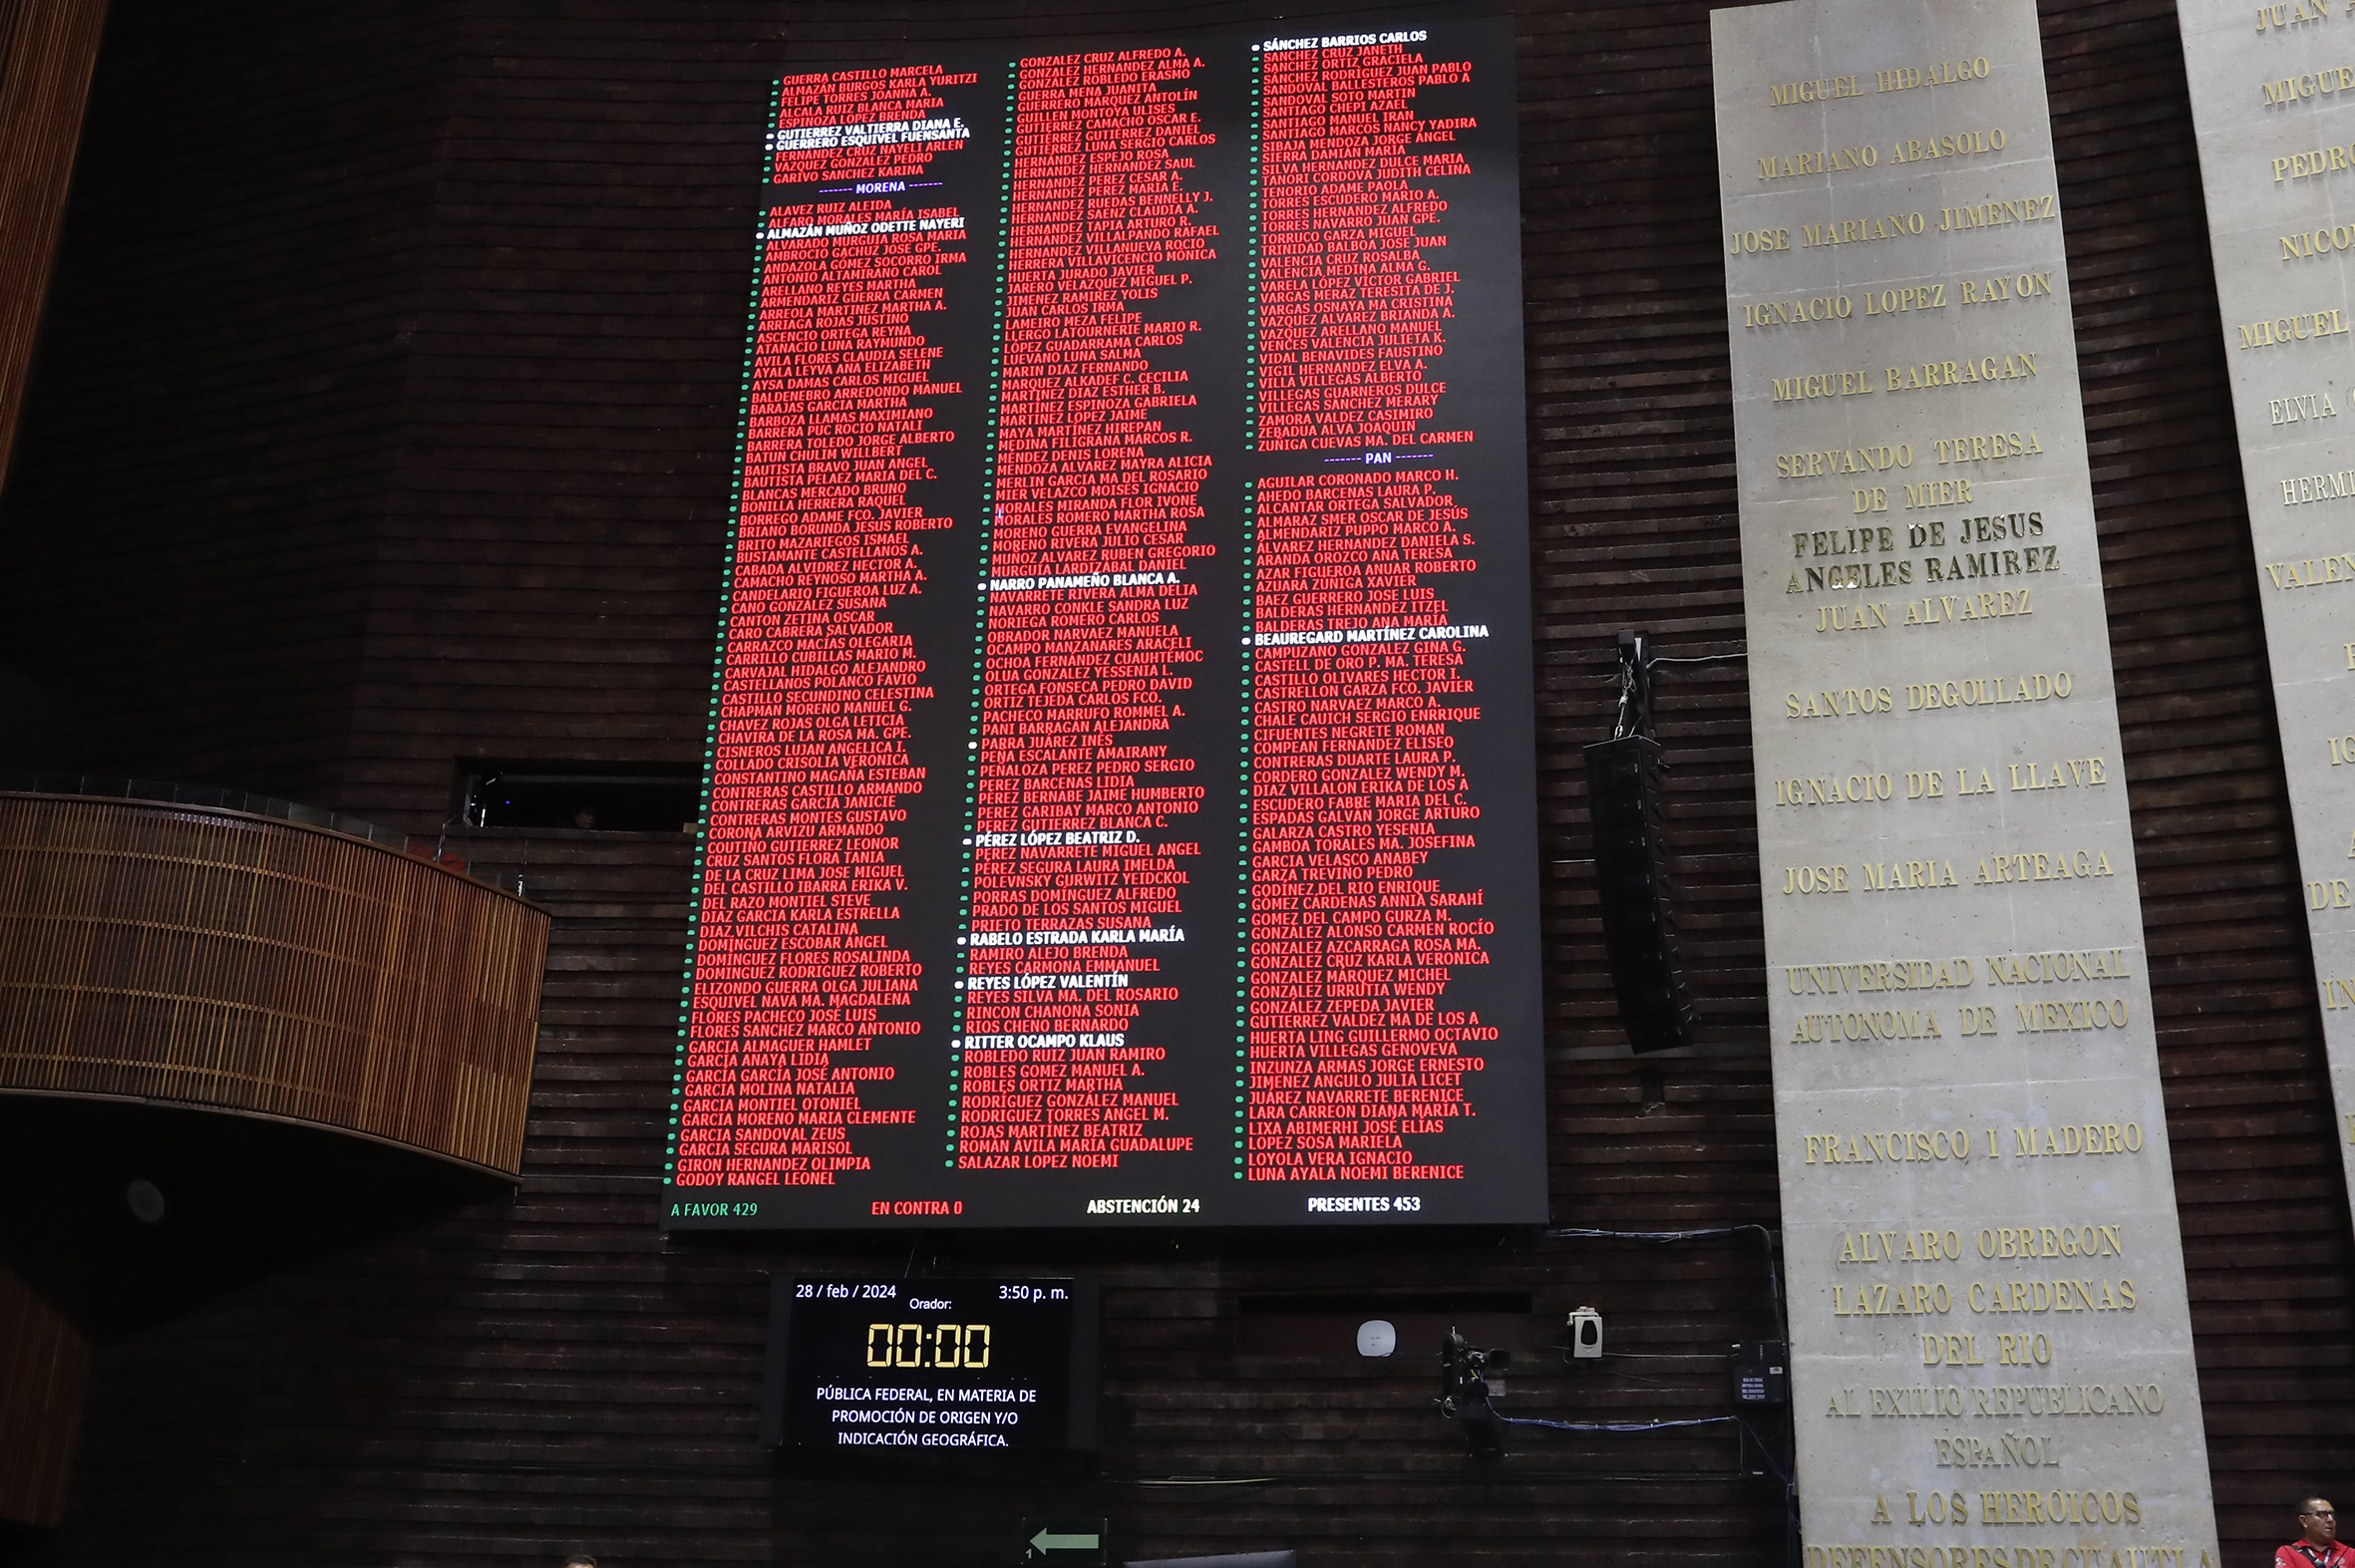 GUERRA CASTILLO MARCELA
ALMAZÁN BURGOS KARLA YURITZI
FELIPE TORRES JOANNA A.
ALCALA RUIZ BLANCA MARIA
ESPINOZA LOPEZ BRENDA
GUTIERREZ VALTIERRA DIANA E.
GUERRERO ESQUIVEL FUENSANTA
FERNANDEZ CRUZ NAYELI ARLEN
VAZQUEZ GONZALEZ PEDRO
GARIVO SANCHEZ KARINA
------- MORENA -------
ALAVEZ RUIZ ALEIDA
ALFARO MORALES MARÍA ISABEL
ALMAZÁN MUÑOZ ODETTE NAYERI
ALVARADO MURGUIA ROSA MARIA
AMBROCIO GACHUZ JOSE GPE.
ANDAZOLA GÓMEZ SOCORRO IRMA
ANTONIO ALTAMIRANO CAROL
ARELLANO REYES MARTHA
ARMENDARIZ GUERRA CARMEN
ARREOLA MARTINEZ MARTHA A.
ARRIAGA ROJAS JUSTINO
ASCENCIO ORTEGA REYNA
ATANACIO LUNA RAYMUNDO
AVILA FLORES CLAUDIA SELENE
AYALA LEYVA ANA ELIZABETH
AYSA DAMAS CARLOS MIGUEL
BALDENEBRO ARREDONDO MANUEL
BARAJAS GARCIA MARTHA
BARBOZA LLAMAS MAXIMIANO
BARRERA PUC ROCIO NATALI
BARRERA TOLEDO JORGE ALBERTO
BATUN CHULIM WILLBERT
BAUTISTA BRAVO JUAN ANGEL
BAUTISTA PELAEZ MARIA DEL C.
BLANCAS MERCADO BRUNO
BONILLA HERRERA RAQUEL
BORREGO ADAME FCO. JAVIER
BRIANO BORUNDA JESUS ROBERTO
BRITO MAZARIEGOS ISMAEL
BUSTAMANTE CASTELLANOS A.
CABADA ALVIDREZ HECTOR A.
CAMACHO REYNOSO MARTHA A.
CANDELARIO FIGUEROA LUZ A.
CANO GONZÁLEZ SUSANA
CANTON ZETINA OSCAR
CARO CABRERA SALVADOR
CARRAZCO MACÍAS OLEGARIA
CARRILLO CUBILLAS MARIO M.
CARVAJAL HIDALGO ALEJANDRO
CASTELLANOS POLANCO FAVIO
CASTILLO SECUNDINO CELESTINA
CHAPMAN MORENO MANUEL G.
CHAVEZ ROJAS OLGA LETICIA
CHAVIRA DE LA ROSA MA. GPE.
CISNEROS LUJAN ANGELICA I.
COLLADO CRISOLIA VERONICA
CONSTANTINO MAGAÑA ESTEBAN
CONTRERAS CASTILLO ARMANDO
CONTRERAS GARCÍA JANICIE
CONTRERAS MONTES GUSTAVO
CORONA ARVIZU ARMANDO
COUTIÑO GUTIERREZ LEONOR
CRUZ SANTOS FLORA TANIA
DE LA CRUZ LIMA JOSE MIGUEL
DEL CASTILLO IBARRA ERIKA V.
DEL RAZO MONTIEL STEVE
DIAZ GARCIA KARLA ESTRELLA
DIAZ VILCHIS CATALINA
DOMÍNGUEZ ESCOBAR ÁNGEL
DOMÍNGUEZ FLORES ROSALINDA
DOMINGUEZ RODRIGUEZ ROBERTO
ELIZONDO GUERRA OLGA JULIANA
ESQUIVEL NAVA MA. MAGDALENA
FLORES PACHECO JOSÉ LUIS
FLORES SANCHEZ MARCO ANTONIO
GARCIA ALMAGUER HAMLET
GARCÍA ANAYA LIDIA
GARCÍA GARCÍA JOSÉ ANTONIO
GARCIA MOLINA NATALIA
GARCIA MONTIEL OTONIEL
GARCIA MORENO MARIA CLEMENTE
GARCIA SANDOVAL ZEUS
GARCIA SEGURA MARISOL
GIRON HERNANDEZ OLIMPIA
GODOY RANGEL LEONEL
GONZALEZ CRUZ ALFREDO A.
GONZALEZ HERNANDEZ ALMA A.
GONZÁLEZ ROBLEDO ERASMO
GUERRA MENA JUANITA
GUERRERO MÁRQUEZ ANTOLÍN
GUILLEN MONTOYA ULISES
GUTIERREZ CAMACHO OSCAR E.
GUTIÉRREZ GUTIÉRREZ DANIEL
GUTIÉRREZ LUNA SERGIO CARLOS
HERNÁNDEZ ESPEJO ROSA
HERNANDEZ HERNANDEZ SAUL
HERNANDEZ PEREZ CESAR A.
HERNANDEZ PEREZ MARIA E.
HERNANDEZ RUEDAS BENNELLY J.
HERNÁNDEZ SAENZ CLAUDIA A.
HERNANDEZ TAPIA ARTURO R.
HERNANDEZ VILLALPANDO RAFAEL
HERNANDEZ VILLANUEVA ROCIO
HERRERA VILLAVICENCIO MONICA
HUERTA JURADO JAVIER
JARERO VELAZQUEZ MIGUEL P.
JIMENEZ RAMIREZ YOLIS
JUAN CARLOS IRMA
LAMEIRO MEZA FELIPE
LLERGO LATOURNERIE MARIO R.
LÓPEZ GUADARRAMA CARLOS
LUEVANO LUNA SALMA
MARIN DIAZ FERNANDO
MARQUEZ ALKADEF C. CECILIA
MARTINEZ DIAZ ESTHER B.
MARTÍNEZ ESPINOZA GABRIELA
MARTÍNEZ LÓPEZ JAIME
MAYA MARTÍNEZ HIREPAN
MEDINA FILIGRANA MARCOS R.
MÉNDEZ DENIS LORENA
MENDOZA ALVAREZ MAYRA ALICIA
MERLIN GARCIA MA DEL ROSARIO
MIER VELAZCO MOISES IGNACIO
MORALES MIRANDA FLOR IVONE
MORALES ROMERO MARTHA ROSA
MORENO GUERRA EVANGELINA
MORENO RIVERA JULIO CESAR
MUÑOZ ALVAREZ RUBEN GREGORIO
MURGUIA LARDIZABAL DANIEL
NARRO PANAMEÑO BLANCA A.
NAVARRETE RIVERA ALMA DELIA
NAVARRO CONKLE SANDRA LUZ
NORIEGA ROMERO CARLOS
OBRADOR NARVAEZ MANUELA
OCAMPO MANZANARES ARACELI
OCHOA FERNÁNDEZ CUAUHTÉMOC
OLUA GONZALEZ YESSENIA L.
ORTEGA FONSECA PEDRO DAVID
ORTIZ TEJEDA CARLOS FCO.
PACHECO MARRUFO ROMMEL A.
PANI BARRAGÁN ALEJANDRA
PARRA JUÁREZ INÉS
PEÑA ESCALANTE AMAIRANY
PEÑALOZA PEREZ PEDRO SERGIO
PEREZ BARCENAS LIDIA
PÉREZ BERNABE JAIME HUMBERTO
PEREZ GARIBAY MARCO ANTONIO
PEREZ GUTIERREZ BLANCA C.
PÉREZ LÓPEZ BEATRIZ D.
PÉREZ NAVARRETE MIGUEL ANGEL
PÉREZ SEGURA LAURA IMELDA
POLEVNSKY GURWITZ YEIDCKOL
PORRAS DOMÍNGUEZ ALFREDO
PRADO DE LOS SANTOS MIGUEL
PRIETO TERRAZAS SUSANA
RABELO ESTRADA KARLA MARÍA
RAMIRO ALEJO BRENDA
REYES CARMONA EMMANUEL
REYES LÓPEZ VALENTÍN
REYES SILVA MA. DEL ROSARIO
RINCON CHANONA SONIA
RIOS CHENO BERNARDO
RITTER OCAMPO KLAUS
ROBLEDO RUIZ JUAN RAMIRO
ROBLES GOMEZ MANUEL A.
ROBLES ORTIZ MARTHA
RODRÍGUEZ GONZÁLEZ MANUEL
RODRIGUEZ TORRES ANGEL M.
ROJAS MARTÍNEZ BEATRIZ
ROMÁN ÁVILA MARÍA GUADALUPE
SALAZAR LOPEZ NOEMI
SÁNCHEZ BARRIOS CARLOS
SÁNCHEZ CRUZ JANETH
SÁNCHEZ ORTÍZ GRACIELA
SÁNCHEZ RODRÍGUEZ JUAN PABLO
SANDOVAL BALLESTEROS PABLO A
SANDOVAL SOTO MARTIN
SANTIAGO CHEPI AZAEL
SANTIAGO MANUEL IRAN
SANTIAGO MARCOS NANCY YADIRA
SIBAJA MENDOZA JORGE ÁNGEL
SIERRA DAMIÁN MARÍA
SILVA HERNANDEZ DULCE MARIA
TANORI CORDOVA JUDITH CELINA
TENORIO ADAME PAOLA
TORRES ESCUDERO MARIO A.
TORRES HERNANDEZ ALFREDO
TORRES NAVARRO JUAN GPE.
TORRUCO GARZA MIGUEL
TRINIDAD BALBOA JOSE JUAN
VALENCIA CRUZ ROSALBA
VALENCIA MEDINA ALMA G.
VARELA LÓPEZ VÍCTOR GABRIEL
VARGAS MERAZ TERESITA DE J.
VARGAS OSNAYA MA CRISTINA
VAZQUEZ ALVAREZ BRIANDA A.
VAZQUEZ ARELLANO MANUEL
VENCES VALENCIA JULIETA K.
VIDAL BENAVIDES FAUSTINO
VIGIL HERNANDEZ ELVA A.
VILLA VILLEGAS ALBERTO
VILLEGAS GUARNEROS DULCE
VILLEGAS SANCHEZ MERARY
ZAMORA VALDEZ CASIMIRO
ZEBADUA ALVA JOAQUIN
ZUÑIGA CUEVAS MA. DEL CARMEN
------- PAN -------
AGUILAR CORONADO MARCO H.
AHEDO BARCENAS LAURA P.
ALCANTAR ORTEGA SALVADOR
ALMARAZ SMER OSCAR DE JESÚS
ALMENDARIZ PUPPO MARCO A.
ÁLVAREZ HERNÁNDEZ DANIELA S.
ARANDA OROZCO ANA TERESA
AZAR FIGUEROA ANUAR ROBERTO
AZUARA ZUÑIGA XAVIER
BAEZ GUERRERO JOSE LUIS
BALDERAS HERNÁNDEZ ITZEL
BALDERAS TREJO ANA MARÍA
BEAUREGARD MARTÍNEZ CAROLINA
CAMPUZANO GONZALEZ GINA G.
CASTELL DE ORO P. MA. TERESA
CASTILLO OLIVARES HECTOR I.
CASTRELLON GARZA FCO. JAVIER
CASTRO NARVAEZ MARCO A.
CHALE CAUICH SERGIO ENRRIQUE
CIFUENTES NEGRETE ROMAN
COMPEAN FERNANDEZ ELISEO
CONTRERAS DUARTE LAURA P.
CORDERO GONZALEZ WENDY M.
DIAZ VILLALON ERIKA DE LOS A
ESCUDERO FABRE MARIA DEL C.
ESPADAS GALVÁN JORGE ARTURO
GALARZA CASTRO YESENIA
GAMBOA TORALES MA. JOSEFINA
GARCIA VELASCO ANABEY
GARZA TREVIÑO PEDRO
GODÍNEZ DEL RIO ENRIQUE
GÓMEZ CÁRDENAS ANNIA SARAHÍ
GOMEZ DEL CAMPO GURZA M.
GONZÁLEZ ALONSO CARMEN ROCÍO
GONZALEZ AZCARRAGA ROSA MA.
GONZALEZ CRUZ KARLA VERONICA
GONZÁLEZ MÁRQUEZ MICHEL
GONZÁLEZ URRUTIA WENDY
GONZÁLEZ ZEPEDA JAVIER
GUTIERREZ VALDEZ MA DE LOS A
HUERTA LING GUILLERMO OCTAVIO
HUERTA VILLEGAS GENOVEVA
INZUNZA ARMAS JORGE ERNESTO
JIMENEZ ANGULO JULIA LICET
JUÁREZ NAVARRETE BERENICE
LARA CARREON DIANA MARÍA T.
LIXA ABIMERHI JOSÉ ELÍAS
LOPEZ SOSA MARIELA
LOYOLA VERA IGNACIO
LUNA AYALA NOEMI BERENICE
A FAVOR 429
EN CONTRA 0
ABSTENCIÓN 24
PRESENTES 453
28 / feb / 2024
3:50 p. m.
Orador:
00:00
PÚBLICA FEDERAL, EN MATERIA DE
PROMOCIÓN DE ORIGEN Y/O
INDICACIÓN GEOGRÁFICA.
1
MIGUEL HIDALGO
MARIANO ABASOLO
JOSE MARIANO JIMENEZ
IGNACIO LOPEZ RAYON
MIGUEL BARRAGAN
SERVANDO TERESA
DE MIER
FELIPE DE JESUS
ANGELES RAMIREZ
JUAN ALVAREZ
SANTOS DEGOLLADO
IGNACIO DE LA LLAVE
JOSE MARIA ARTEAGA
UNIVERSIDAD NACIONAL
AUTONOMA DE MEXICO
FRANCISCO I MADERO
ALVARO OBREGON
LAZARO CARDENAS
DEL RIO
AL EXILIO REPUBLICANO
ESPAÑOL
A LOS HEROICOS
DEFENSORES DE
JUAN
MIGUE
PEDRO
NICO
MIGUEL
ELVIA
HERMI
VALEN
DE